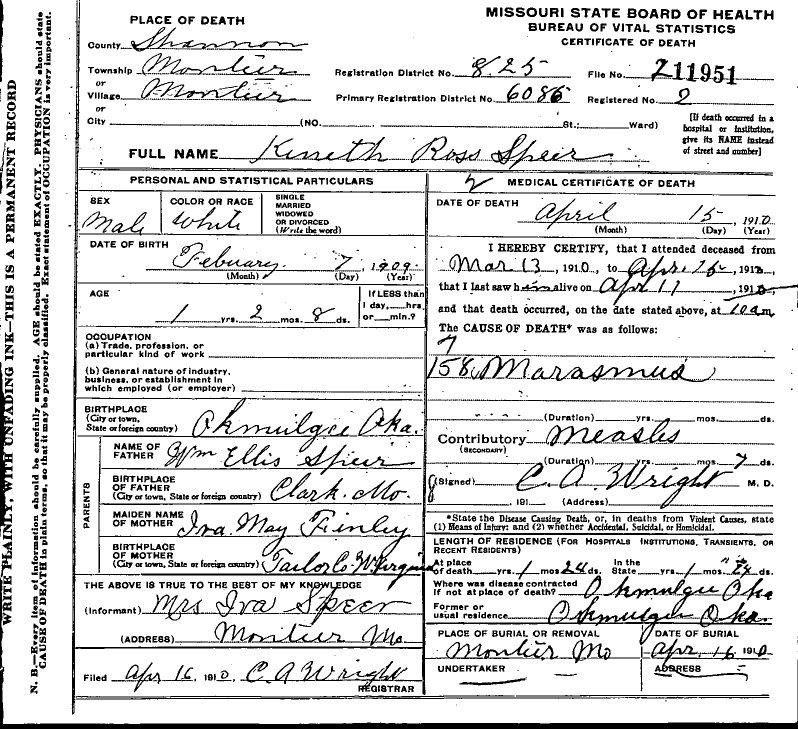 WRITE PLAINLY, WITH UNFADING INK—THIS IS A PERMANENT RECORD
N. B.—Every item of information should be carefully supplied. AGE should be stated EXACTLY. PHYSICIANS should state
CAUSE OF DEATH in plain terms, so that it may be properly classified. Exact statement of OCCUPATION is very important.
MISSOURI STATE BOARD OF HEALTH
BUREAU OF VITAL STATISTICS
CERTIFICATE OF DEATH
PLACE OF DEATH
County Shannon
Township Montier
or
Village Montier
or
City (NO. St.; Ward)
Registration District No. 825 File No. 11951
Primary Registration District No. 6086 Registered No. 2
[If death occurred in a
hospital or institution,
give its NAME instead
of street and number]
FULL NAME Kenneth Ross Speir
PERSONAL AND STATISTICAL PARTICULARS
SEX Male
COLOR OR RACE White
SINGLE
MARRIED
WIDOWED
OR DIVORCED
(Write the word)
DATE OF BIRTH
Febuary 7, 1909
(Month) (Day) (Year)
AGE
1 yrs. 2 mos. 8 ds.
If LESS than
1 day,...hrs.
or...min.?
OCCUPATION
(a) Trade, profession, or
particular kind of work
(b) General nature of industry,
business, or establishment in
which employed (or employer)
BIRTHPLACE
(City or town,
State or foreign country) Okmulgee Oka.
PARENTS
NAME OF
FATHER Wm Ellis Speir
BIRTHPLACE
OF FATHER
(City or town, State or foreign country) Clark. Mo.
MAIDEN NAME
OF MOTHER Iva May Finley
BIRTHPLACE
OF MOTHER
(City or town, State or foreign country) Tailor Co W Virginia
THE ABOVE IS TRUE TO THE BEST OF MY KNOWLEDGE
(Informant) Mrs Iva Speer
(ADDRESS) Montier Mo
Filed Apr 16, 1910, C. A Wright
REGISTRAR
2 MEDICAL CERTIFICATE OF DEATH
DATE OF DEATH
April 15, 1910
(Month) (Day) (Year)
I HEREBY CERTIFY, that I attended deceased from
Mar 13, 1910, to Apr. 15, 1910,
that I last saw him alive on Apr 11, 1910,
and that death occurred, on the date stated above, at 10 am
The CAUSE OF DEATH* was as follows:
158 Marasmus
(Duration) yrs. mos. ds.
Contributory Measles
(SECONDARY)
(Duration) yrs. mos. 7 ds.
(Signed) C. A. Wright M. D.
191 (Address)
*State the Disease Causing Death, or, in deaths from Violent Causes, state
(1) Means of Injury; and (2) whether Accidental, Suicidal, or Homicidal.
LENGTH OF RESIDENCE (FOR HOSPITALS, INSTITUTIONS, TRANSIENTS, OR
RECENT RESIDENTS)
At place
of death yrs. 1 mos. 24 ds. In the
State yrs. 1 mos. 24 ds.
Where was disease contracted
if not at place of death? Okmulgee Oka
Former or
usual residence Okmulgee Oka.
PLACE OF BURIAL OR REMOVAL
Montier Mo
DATE OF BURIAL
Apr. 16 1910
UNDERTAKER
ADDRESS